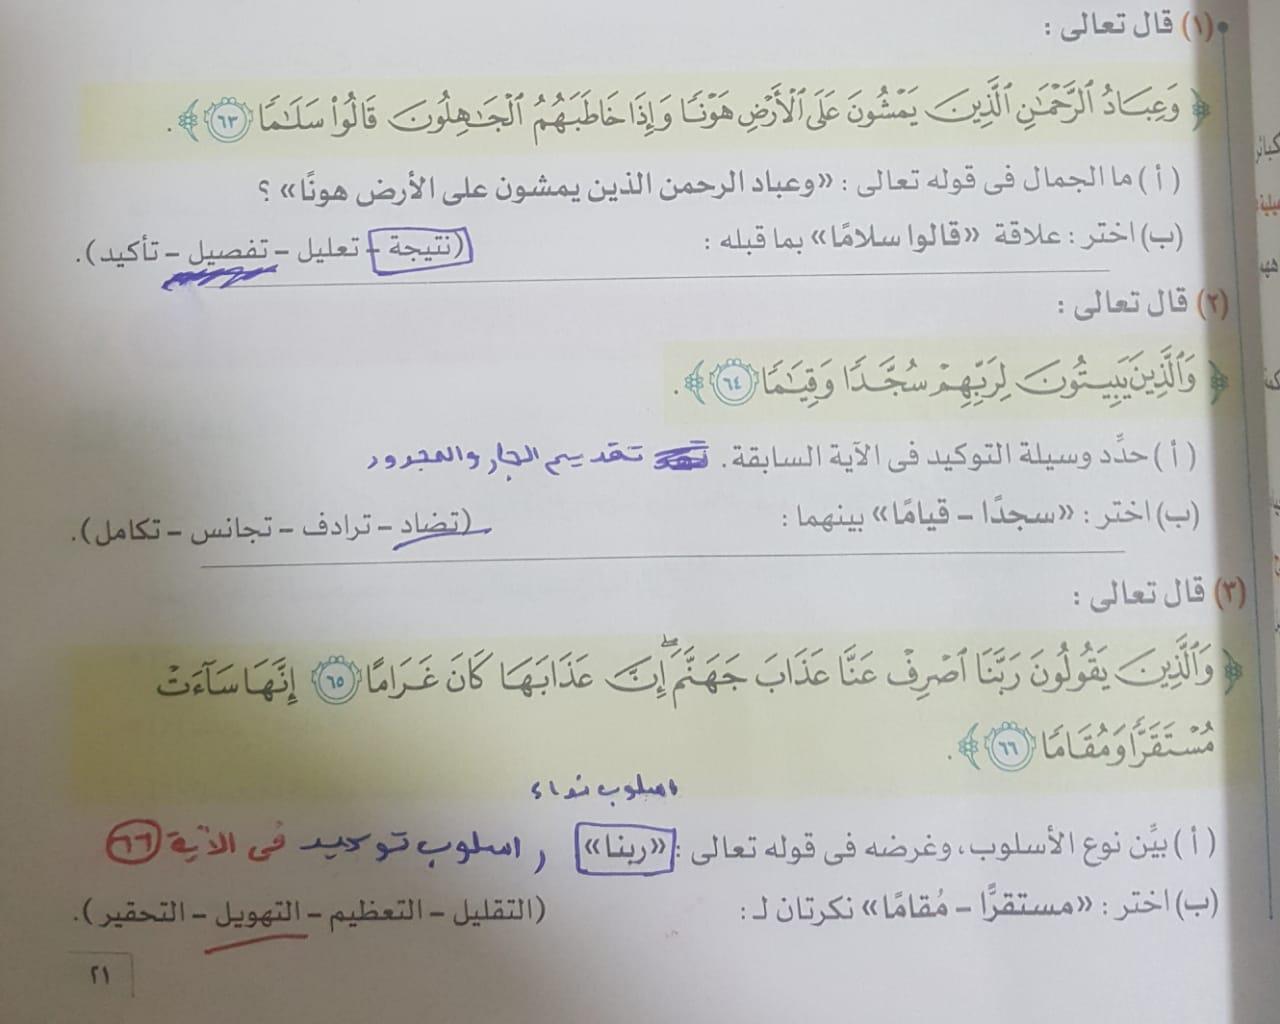 (١) قال تعالى :
﴿ وَعِبَادُ ٱلرَّحْمَٰنِ ٱلَّذِينَ يَمْشُونَ عَلَى ٱلْأَرْضِ هَوْنًا وَإِذَا خَاطَبَهُمُ ٱلْجَٰهِلُونَ قَالُوا۟ سَلَٰمًا ٦٣ ﴾ .
( أ ) ما الجمال فى قوله تعالى : «وعباد الرحمن الذين يمشون على الأرض هونًا» ؟
(ب) اختر : علاقة «قالوا سلامًا» بما قبله : (نتيجة – تعليل – تفصيل – تأكيد).
(٢) قال تعالى :
﴿ وَٱلَّذِينَ يَبِيتُونَ لِرَبِّهِمْ سُجَّدًا وَقِيَٰمًا ٦٤ ﴾ .
( أ ) حدِّد وسيلة التوكيد فى الآية السابقة . تقديم الجار والمجرور
(ب) اختر : «سجدًا – قيامًا» بينهما : (تضاد – ترادف – تجانس – تكامل).
(٣) قال تعالى :
﴿ وَٱلَّذِينَ يَقُولُونَ رَبَّنَا ٱصْرِفْ عَنَّا عَذَابَ جَهَنَّمَ ۖ إِنَّ عَذَابَهَا كَانَ غَرَامًا ٦٥ إِنَّهَا سَآءَتْ
مُسْتَقَرًّا وَمُقَامًا ٦٦ ﴾ .
اسلوب نداء
( أ ) بيِّن نوع الأسلوب، وغرضه فى قوله تعالى : «ربنا» , اسلوب توكيد فى الآية ٦٦
(ب) اختر : «مستقرًّا – مُقامًا» نكرتان لـ : (التقليل – التعظيم – التهويل – التحقير).
٢١